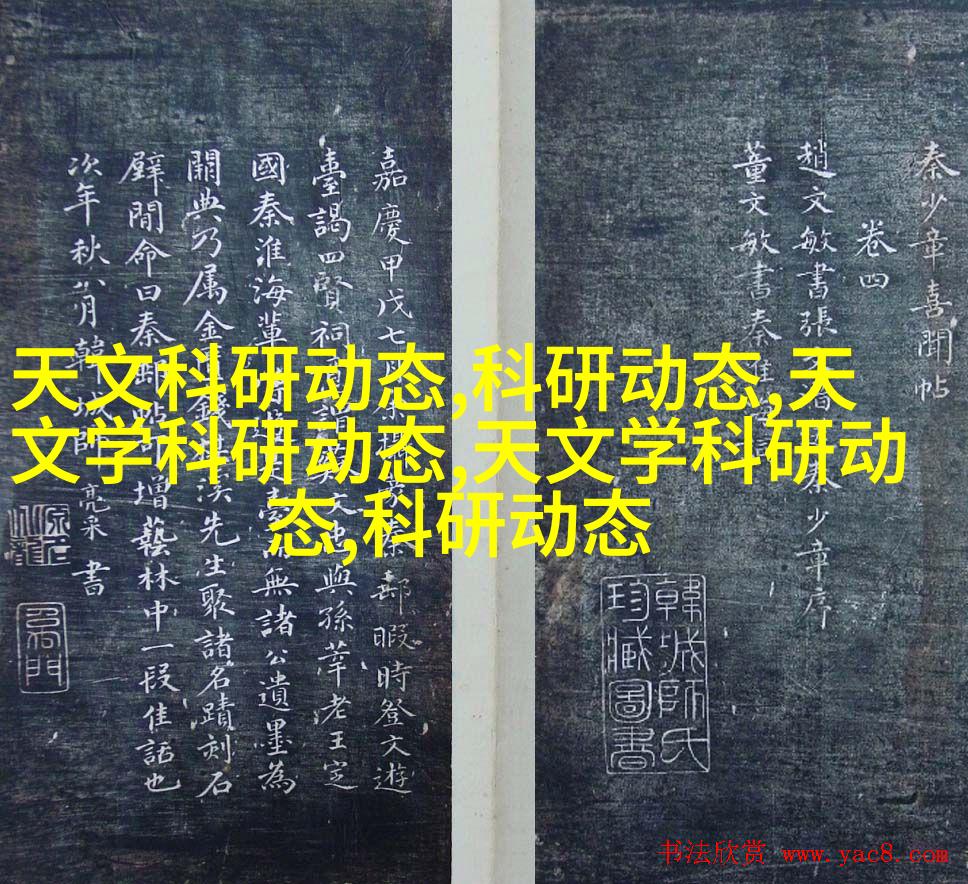 秦少章喜聞帖
卷四
趙文敏書張
秦少章序
董文敏書秦淮海詞
韓城師氏
珍臧圖書
嘉慶甲戌七月
秦郵暇時登文遊
臺謁四賢祠
文忠與孫莘老王定
國秦淮海輩
無諸公遺墨為
闕典乃属金匱錢
溪先生聚諸名蹟刻石
壁間命曰秦郵帖
增藝林中一段佳話也
次年秋八月韓城師亮采書
天文科研动态,科研动态,天
文学科研动态,天文学科研动
态,科研动态
书法欣赏 www.yac8.com